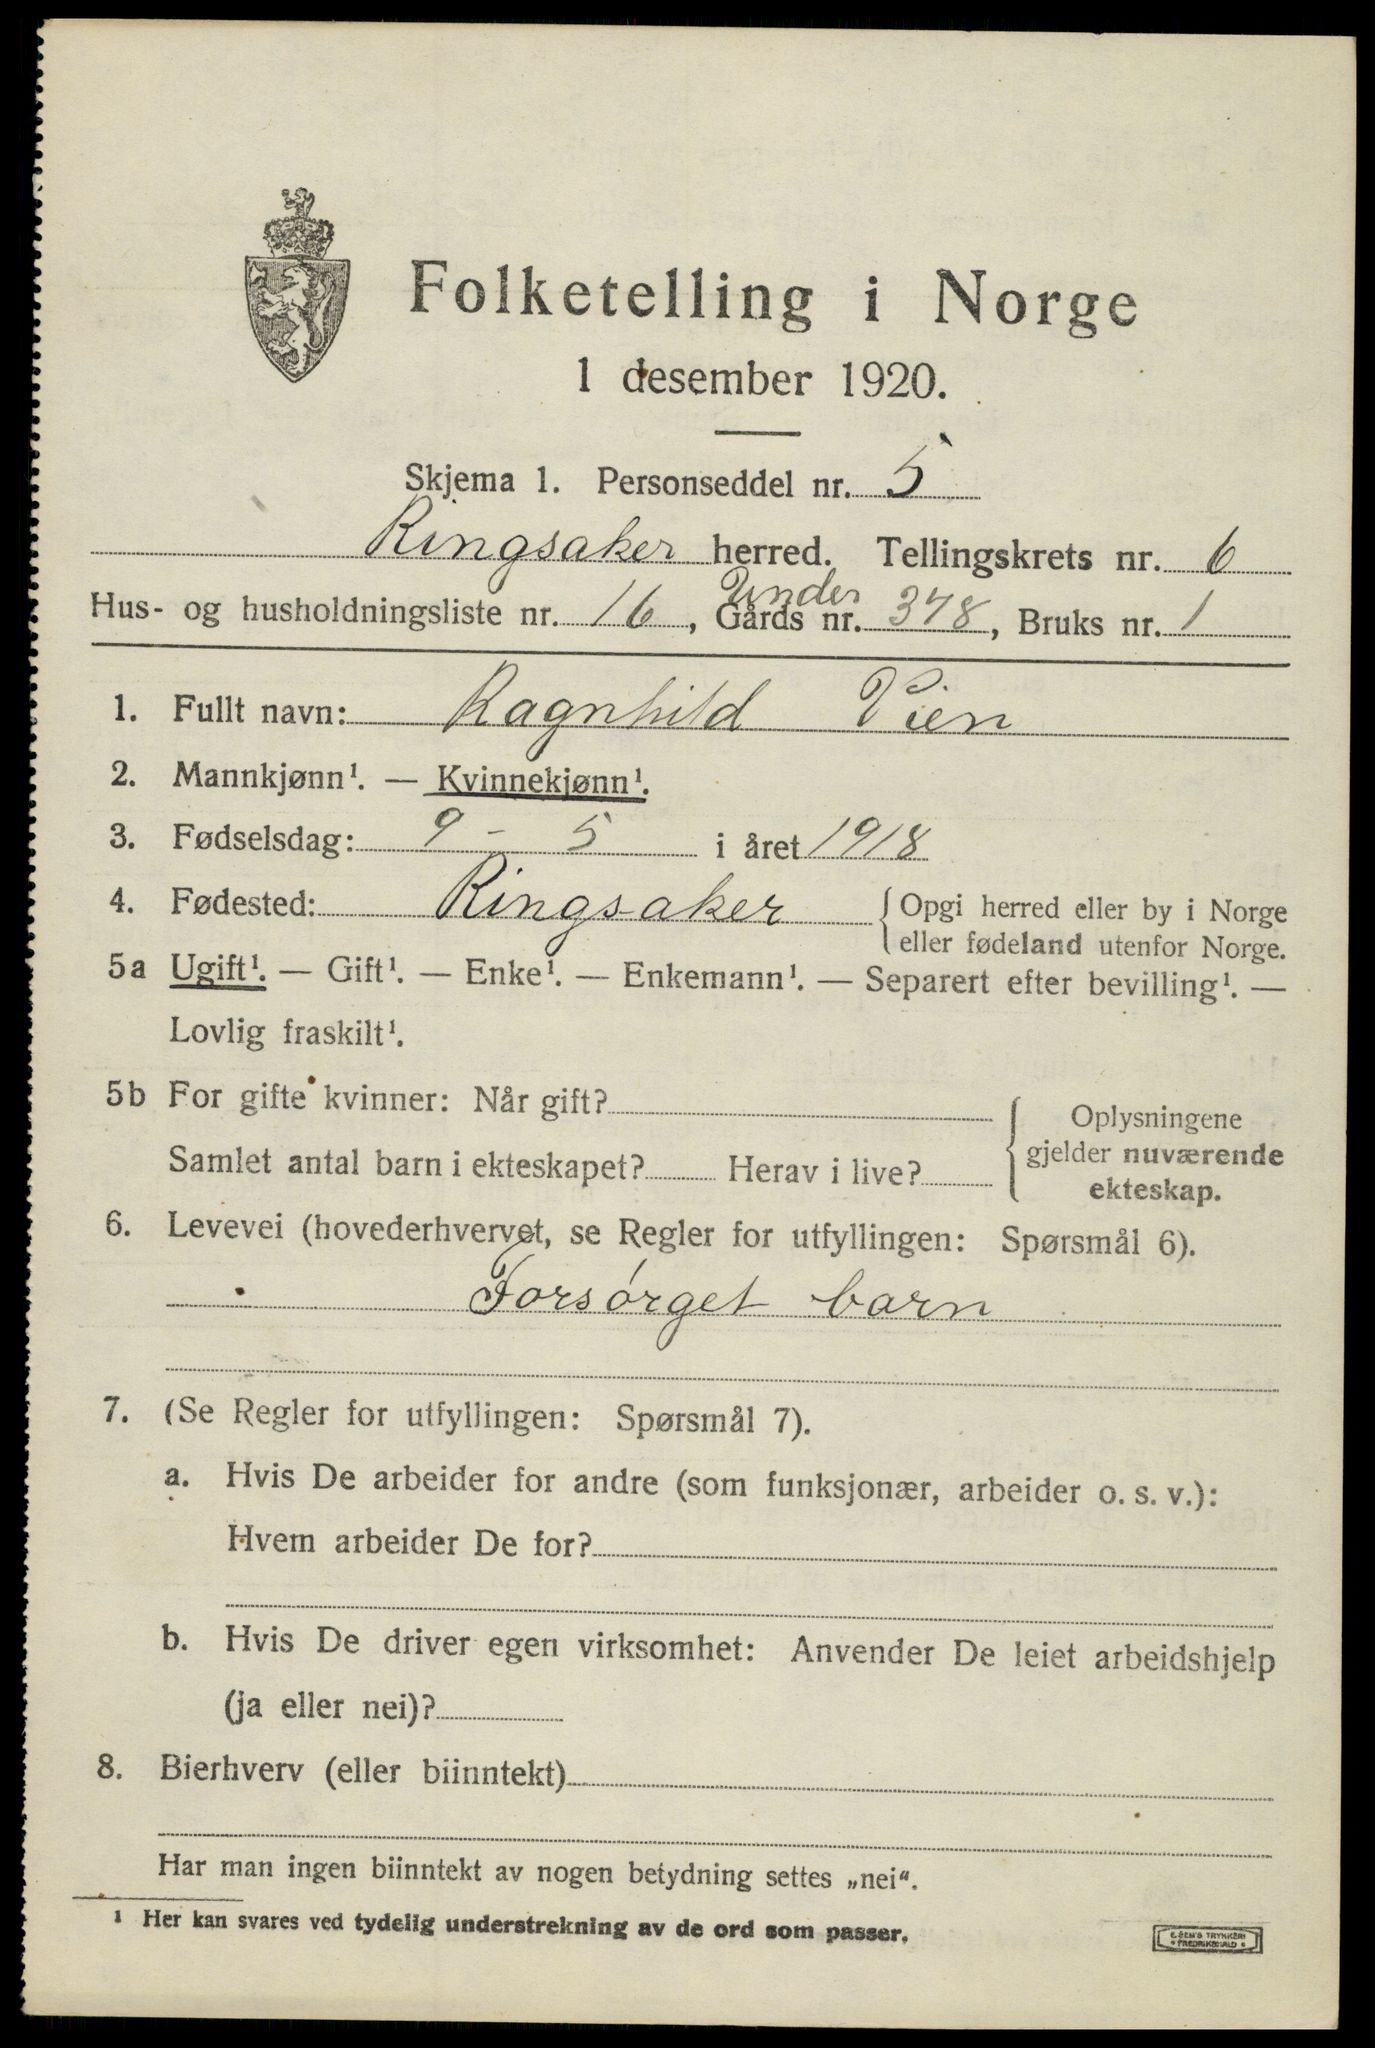 Folketelling i Norge
1 desember 1920.
Skjema 1. Personseddel nr. 5
Ringsaker herred. Tellingskrets nr. 6
Under
Hus- og husholdningsliste nr. 16, Gårds nr. 378, Bruks nr. 1
1. Fullt navn: Ragnhild Vien
2. Mannkjønn¹. — Kvinnekjønn¹.
3. Fødselsdag: 9 - 5 i året 1918
4. Fødested: Ringsaker { Opgi herred eller by i Norge
eller fødeland utenfor Norge.
5a Ugift¹. — Gift¹. — Enke¹. — Enkemann¹. — Separert efter bevilling¹. —
Lovlig fraskilt¹.
5b For gifte kvinner: Når gift?
Samlet antal barn i ekteskapet? Herav i live?
{ Oplysningene
gjelder nuværende
ekteskap.
6. Levevei (hovederhvervet, se Regler for utfyllingen: Spørsmål 6).
Forsørget barn
7. (Se Regler for utfyllingen: Spørsmål 7).
a. Hvis De arbeider for andre (som funksjonær, arbeider o. s. v.):
Hvem arbeider De for?
b. Hvis De driver egen virksomhet: Anvender De leiet arbeidshjelp
(ja eller nei)?
8. Bierhverv (eller biinntekt)
Har man ingen biinntekt av nogen betydning settes „nei“.
¹ Her kan svares ved tydelig understrekning av de ord som passer.
E. SEM'S TRYKKERI
• FREDRIKSHALD •